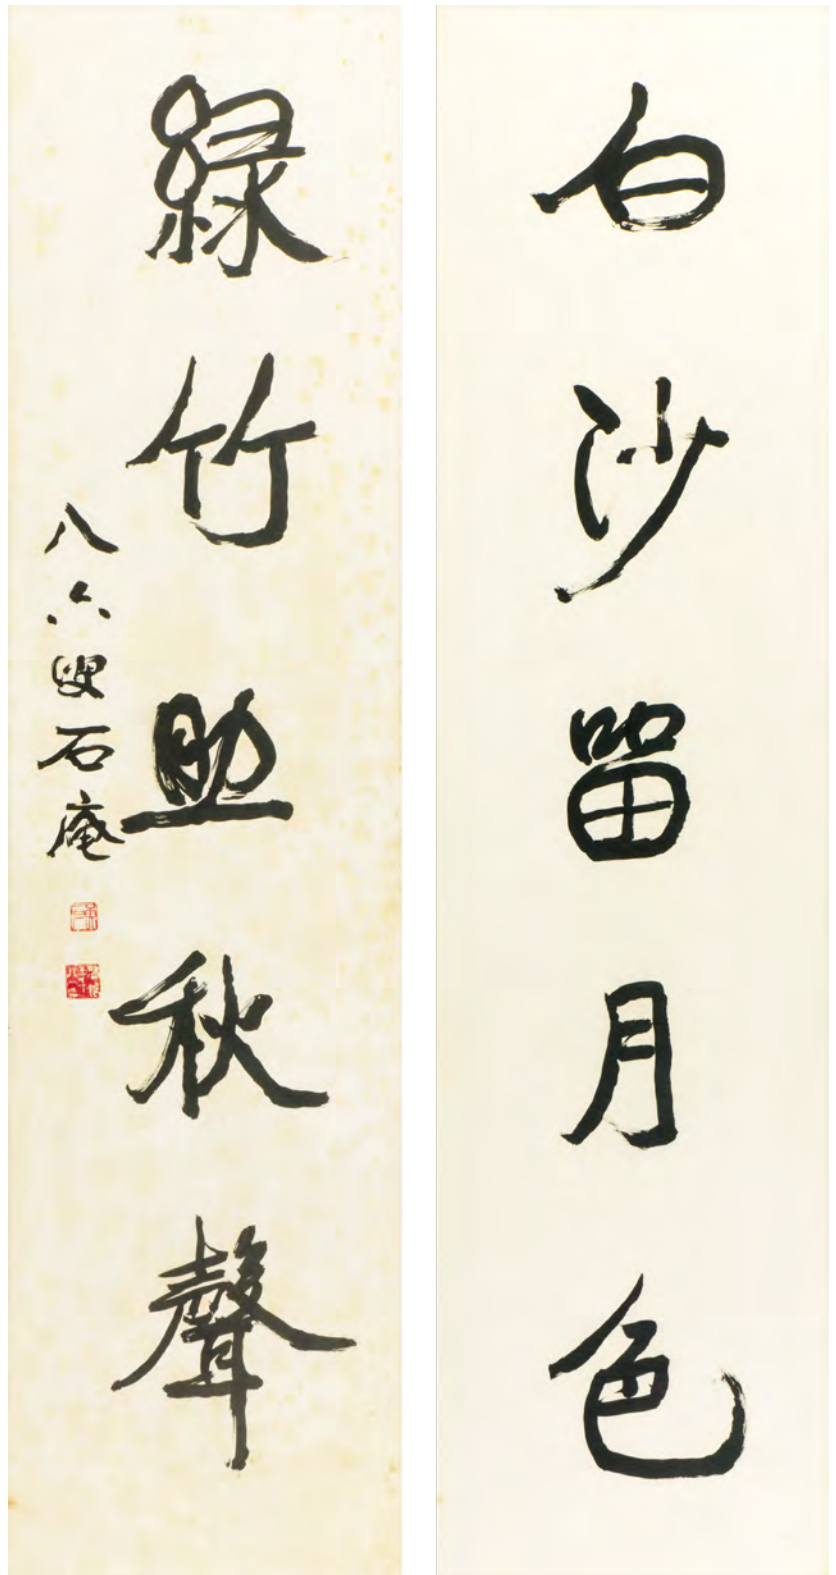 白沙留月色
緑竹助秋聲
八六叟石庵